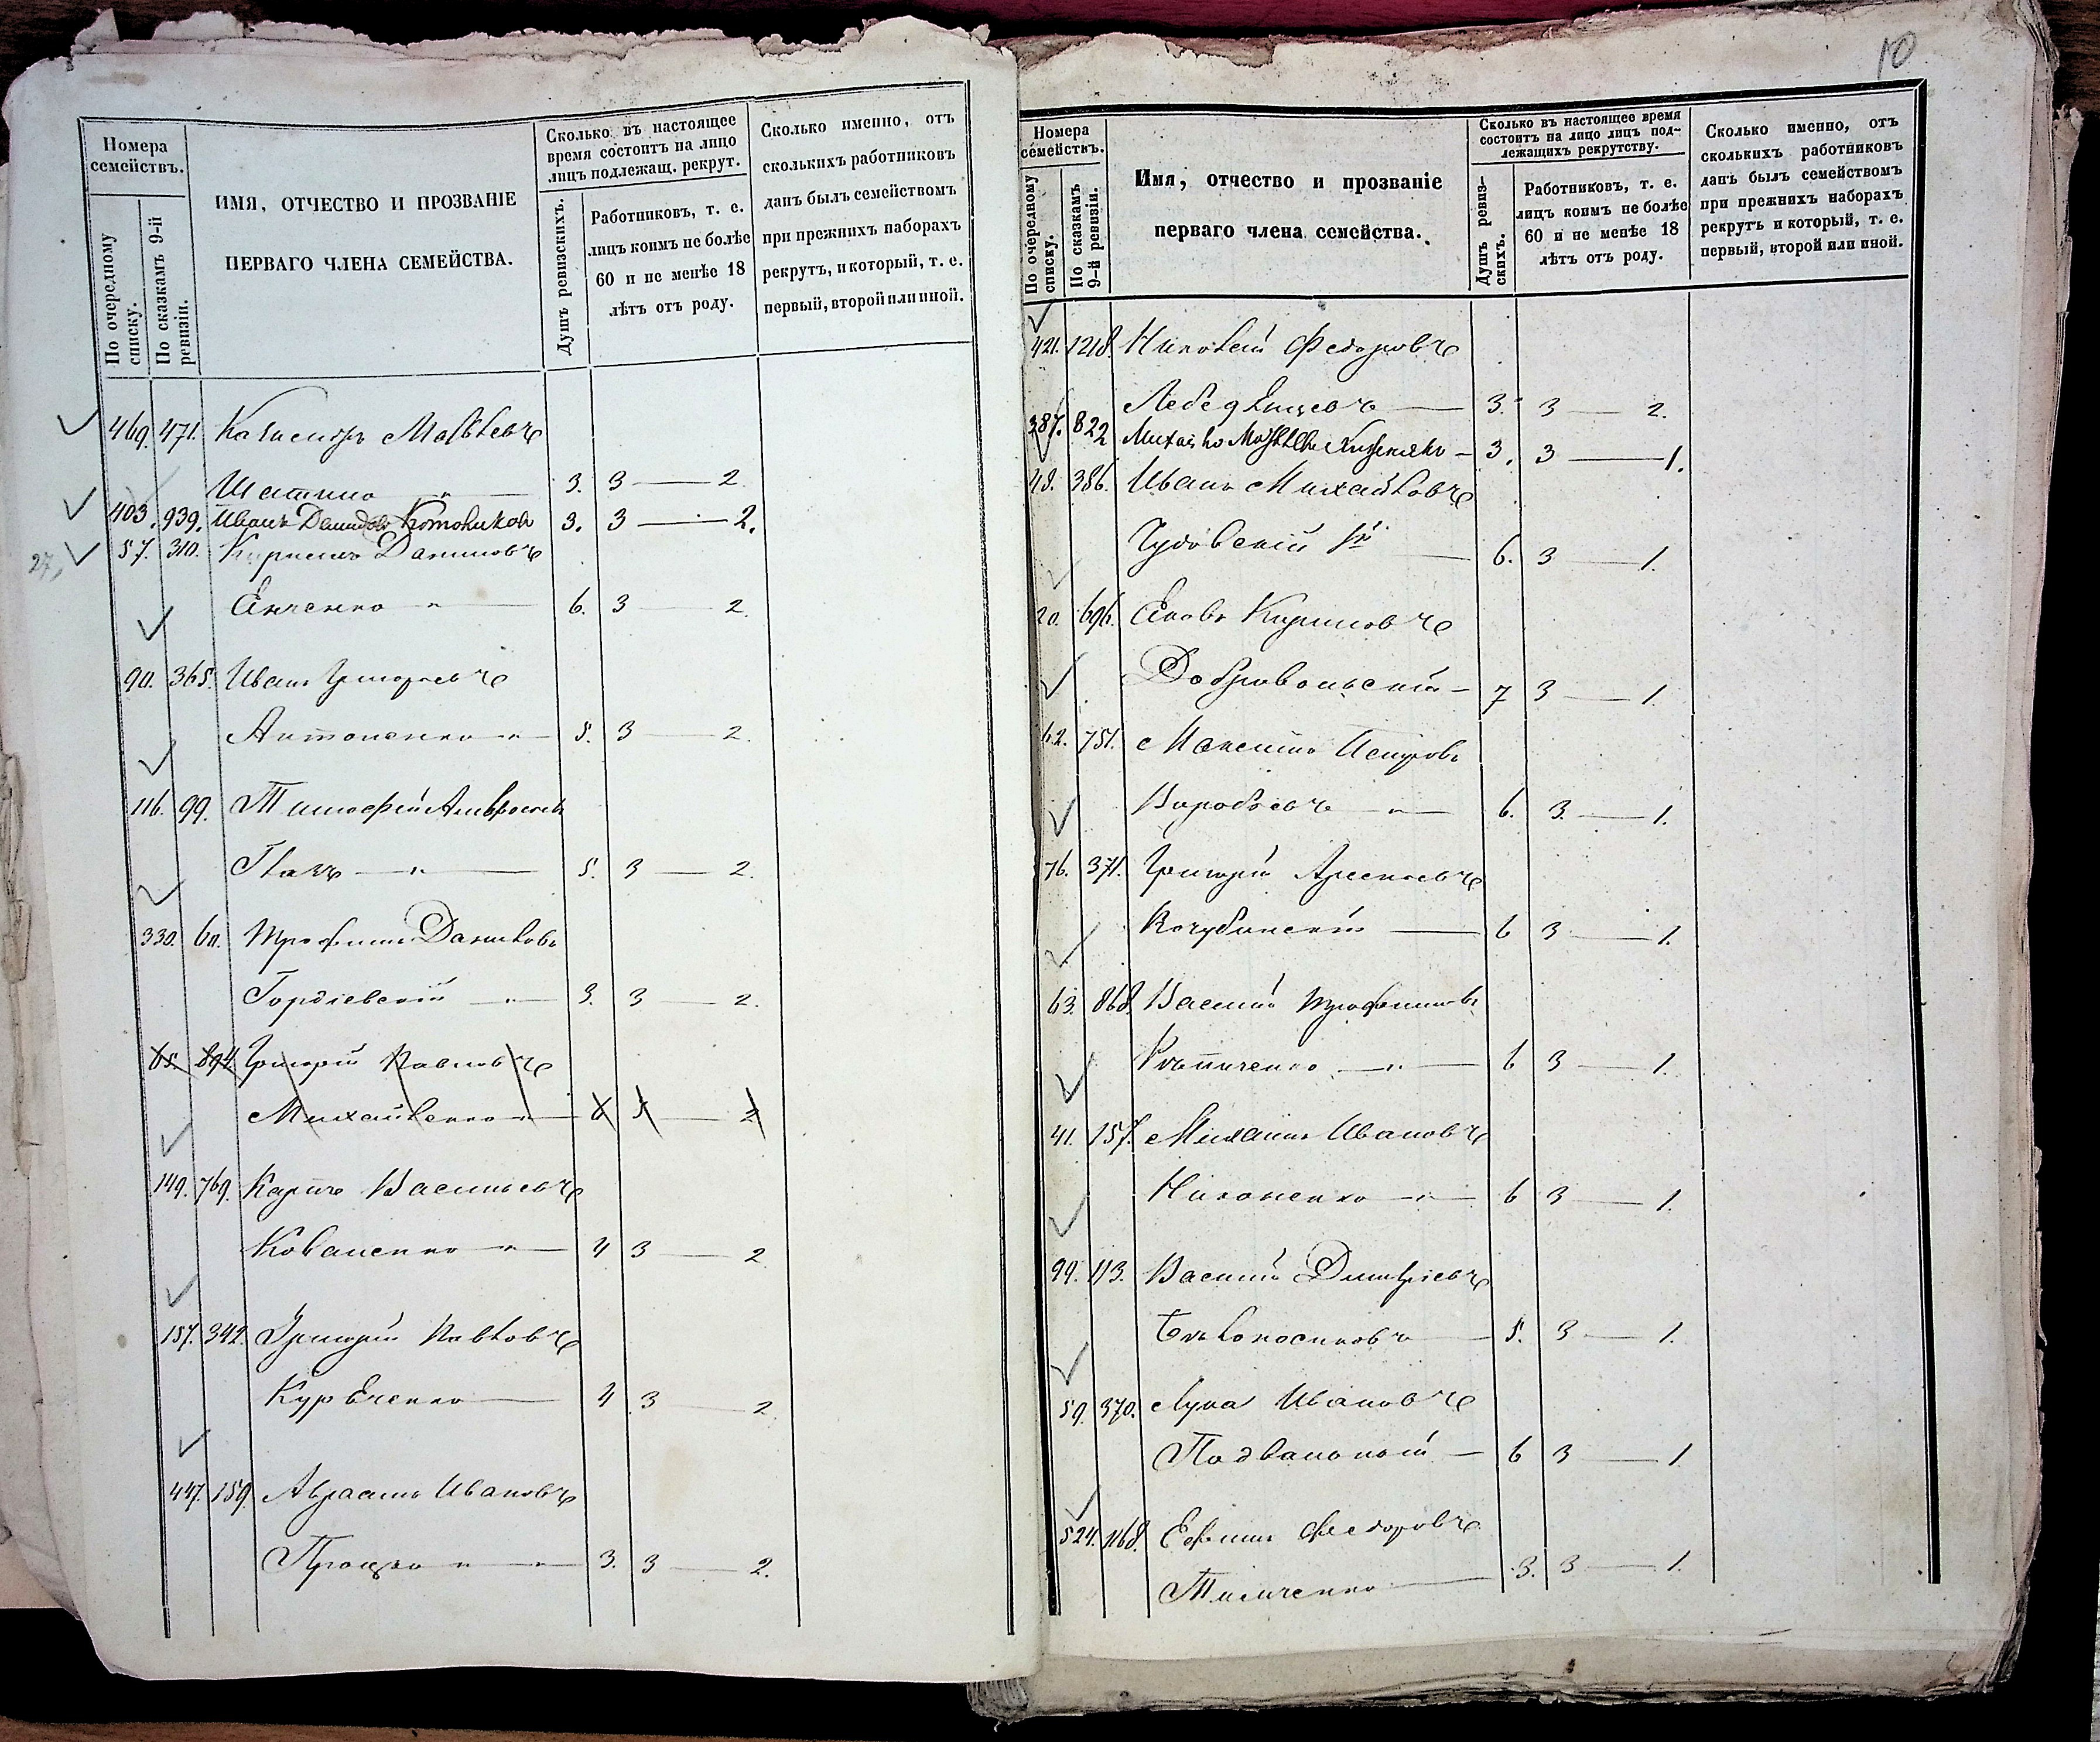 Номера семействъ.
По очередному списку.
По сказкамъ 9-й ревизіи.
ИМЯ, ОТЧЕСТВО И ПРОЗВАНІЕ
ПЕРВАГО ЧЛЕНА СЕМЕЙСТВА.
Сколько въ настоящее
время состоитъ на лицо
лицъ подлежащ. рекрут.
Душъ ревизскихъ.
Работниковъ, т. е.
лицъ коимъ не болѣе
60 и не менѣе 18
лѣтъ отъ роду.
Сколько именно, отъ
сколькихъ работниковъ
данъ былъ семействомъ
при прежнихъ наборахъ
рекрутъ, и который, т. е.
первый, второй или иной.
469. 471. Матвѣевъ
3. 3 — 2.
403. 939. Иванъ Демидовъ Котоликов 3. 3 — 2.
57. 310. Кирилъ Даниловъ
27,
Енченко 6. 3 — 2.
90. 365. Иванъ Григорьевъ
Антоненко 5. 3 — 2.
116. 99. Тимофей Амвросіевъ
5. 3 — 2.
330. 60. Трофимъ Даниловъ
Гордіевскій 3. 3 — 2.
85. 894. Григорій Павловъ
Михайленко 2
149. 769. Карпъ Васильевъ
Коваленко 4 3 — 2
157. 342. Григорій Павловъ
Курѣченко 4 3 — 2
447. 159. Авраамъ Ивановъ
Процко 3. 3 — 2.
10
Номера
семействъ.
По очередному списку.
По сказкамъ 9-й ревизіи.
Имя, отчество и прозваніе
перваго члена семейства.
Сколько въ настоящее время
состоитъ на лицо лицъ под-
лежащихъ рекрутству.
Душъ ревиз-
скихъ.
Работниковъ, т. е.
лицъ коимъ не болѣе
60 и не менѣе 18
лѣтъ отъ роду.
Сколько именно, отъ
сколькихъ работниковъ
данъ былъ семействомъ
при прежнихъ наборахъ
рекрутъ и который, т. е.
первый, второй или иной.
421. 1218. Николай Федоровъ
Лебединцевъ 3. 3 — 2.
387. 822 Михайло Матвѣевъ 3. 3 — 1.
48. 386. Иванъ Михайловъ
Чудовскій 6. 3 — 1.
20. 696. Яковъ Кириловъ
Добровольскій 7 3 — 1.
62. 751. Максимъ Исидоровъ
Воробьевъ 6. 3. — 1.
76. 371. Григорій Арсеньевъ
Кочубинскій 6 3 — 1.
63. 868. Василій Трофимовъ
6 3 — 1.
41. 157. Михаилъ Ивановъ
Николенко 6 3 — 1.
99. 113. Василій Дмитріевъ
Бѣлоносиковъ 5. 3 — 1.
59. 370. Лука Ивановъ
Подвальный 6 3 — 1
524. 1168. Ефимъ Федоровъ
Тимченко 3. 3 — 1.